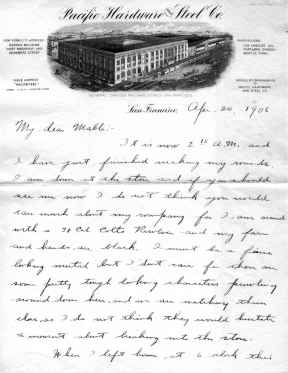 Pacific Hardware and Steel Co.
San Francisco, Apr. 20 1906
My dear Mabll:-
It is now 2 A.M. and
I have just finished making my rounds
I am down at the store and if you should
see me now I do not think you would
care much about my company for I am armed
with a 38 Cal Colts Revolver and my face
and hands are black. I must be a fierce
looking but I don't care for there are
some pretty tough looking characters prowling
around down here and we are watching them
close, as I do not think they would hesitate
a moment about breaking into the store.
When I left home, at 6 o'clock this